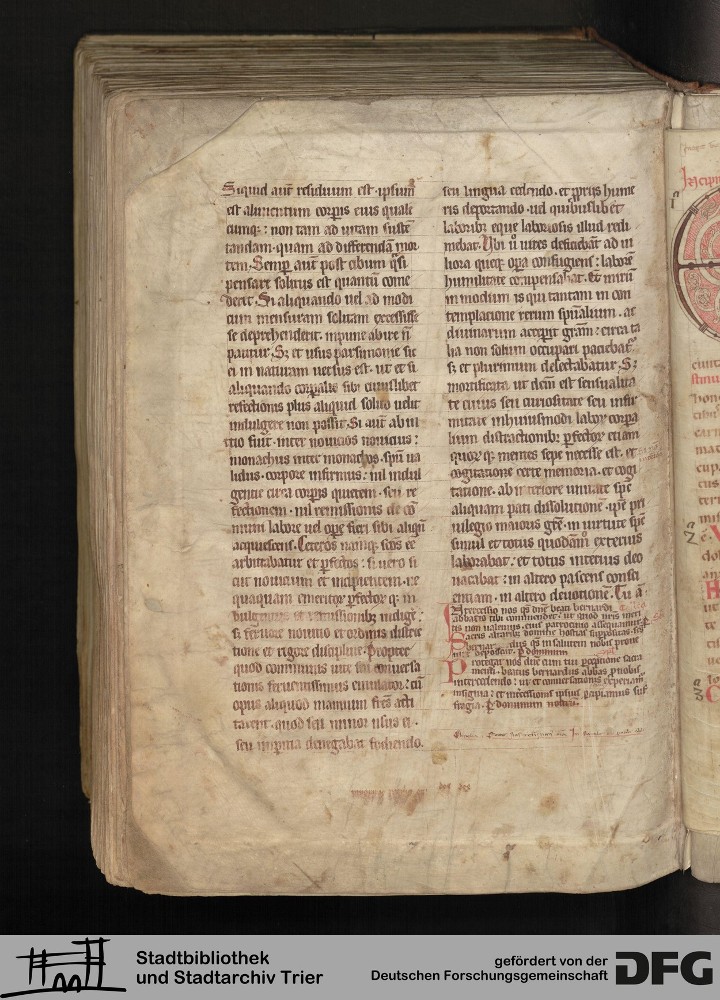 Siquid aut̄ residuum est · ipsum
est alimentum corp̄is eius quale
cumq; : non tam ad uitam susten
tandam · quam ad differendā mor
tem · Semp̄ aut̄ post cibum q̄si
pensare solitus est quantū come
derit · Si aliquando uel ad modi
cum mensuram solitam excessisse
se deprehenderit · inpune abire n̄
patitur · Sȝ et usus parsimonie sic
ei in naturam uersus est · ut et si
aliquando corpalis sibi cuiuslibet
refectionis plus aliquid solito uelit
indulgere non possit · Si aut̄ ab ini
tio fuit · inter nouicios nouicius :
monachus inter monachos · sp̄u ua
lidus · corpore infirmus : nil indul
gentie circa corp̄is quietem · seu re
fectionem · nil remissionis de cō
muni labore uel ope fieri sibi aliqn̄
acquiescens · Ceteros namq; sc̄os ee
arbitrabatur et p̄fectos : se uero si
cut nouicium et incipientem · ne
quaquam emeritor p̄fector q; in
dulgentiis et remissionibȝ indige :
sȝ feruore nouitio et ordinis distric
tione et rigore discipline · Propter
quod communis uite seu conuersa
tionis feruentissimus emulator : cū
opus aliquod manuum fr̄es acti
tarent · quod seu minor usus ei ·
seu impitia denegabat fodiendo ·
seu ligna cedendo · et p̄p̄iis hume
ris deportando · uel quibuslibet
laboribȝ eque laboriosis illud redi
mebat · Ubi ů uires deficiebāt ad ui
liora queq; opa confugiens : laborē
humilitate compensabat · Et mirū
in modum is qui tantam in con
templatione rerum sp̄ualium · ac
diuinarum accepit grām : circa ta
lia non solum occupari paciebat̄ ·
sȝ et plurimum delectabatur · Sȝ
mortificata ut dc̄m est sensualita
te cuius seu curiositate seu infir
mitate in huiusmodi labor corpa
lium distractionibȝ p̄fector etiam
quor q; mentes sepe necesse est · et
cogitatione certe memoria · et cogi
tatione · ab interiore unitate sp̄c
aliquam pati dissolutionē · ip̄e pri
uilegio maioris gr̄e · in uirtute sp̄c
simul et totus quodāmodo exterius
laborabat · et totus interius deo
uacabat · in altero pascens consci
entiam · in altero deuotionē · Tu ā
Intercessio nos q̄s dn̄e beati bernardi
abbatis tibi commendet : ut quod nr̄is meri
tis non ualemus · eius patrocinio assequamur · P̄
Sacris altaribȝ domine hostias suppositas · sc̄s
bernar dus q̄s in salutem nobis prouē
ire deposcat · P̄ dominum
Protegat nos dn̄e cum tui p̄ceptione sacra
menti · beatus bernardus abbas p̄ nobis
intercedendo : ut et conuersationis exp̄iamur
insignia : et intercessionis ipsius p̄cipiamus suf
fragia · P̄ dominum nostrum ·
Stadtbibliothek
und Stadtarchiv Trier
gefördert von der
Deutschen Forschungsgemeinschaft
DFG